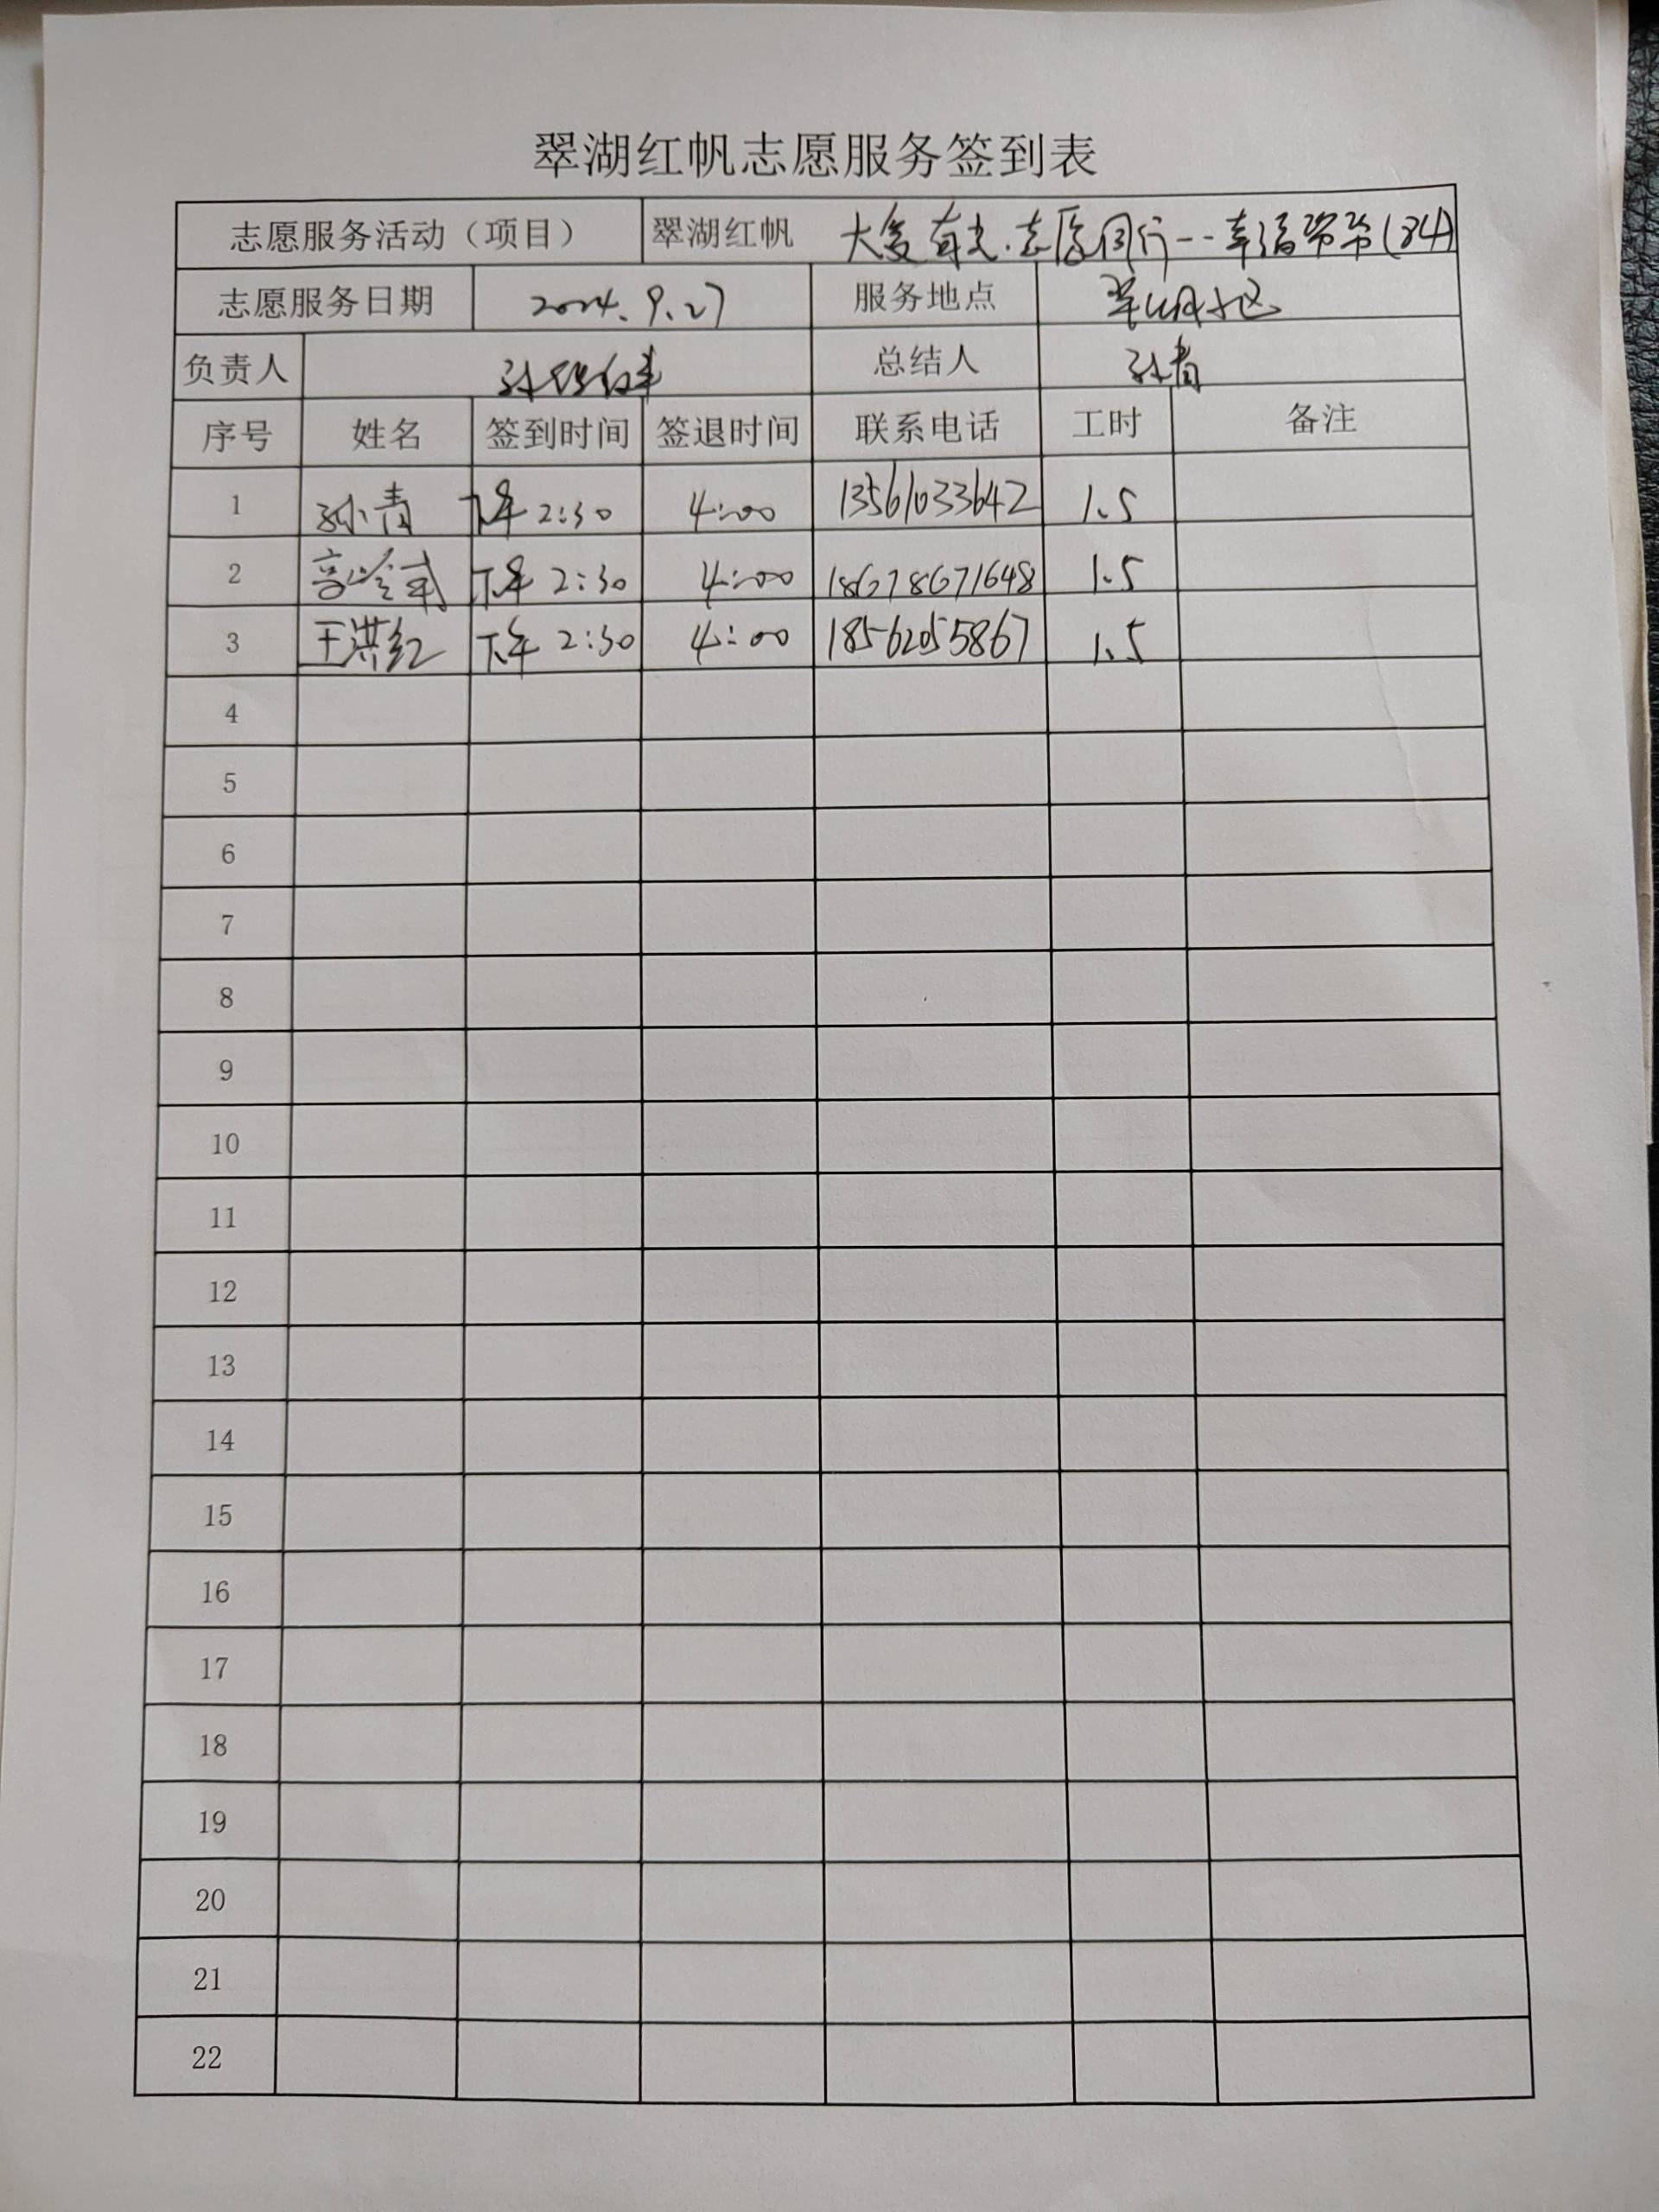 翠湖红帆志愿服务签到表
志愿服务活动（项目） 翠湖红帆 大爱有光.志愿同行--幸福帮帮(84)
志愿服务日期 2024.9.27 服务地点 翠山小区
负责人 孙 总结人 孙青
序号 姓名 签到时间 签退时间 联系电话 工时 备注
1 孙青 下午 2:30 4:00 13561033642 1.5
2 高岭 下午 2:30 4:00 18678671648 1.5
3 王洪红 下午 2:30 4:00 18562055867 1.5
4
5
6
7
8
9
10
11
12
13
14
15
16
17
18
19
20
21
22